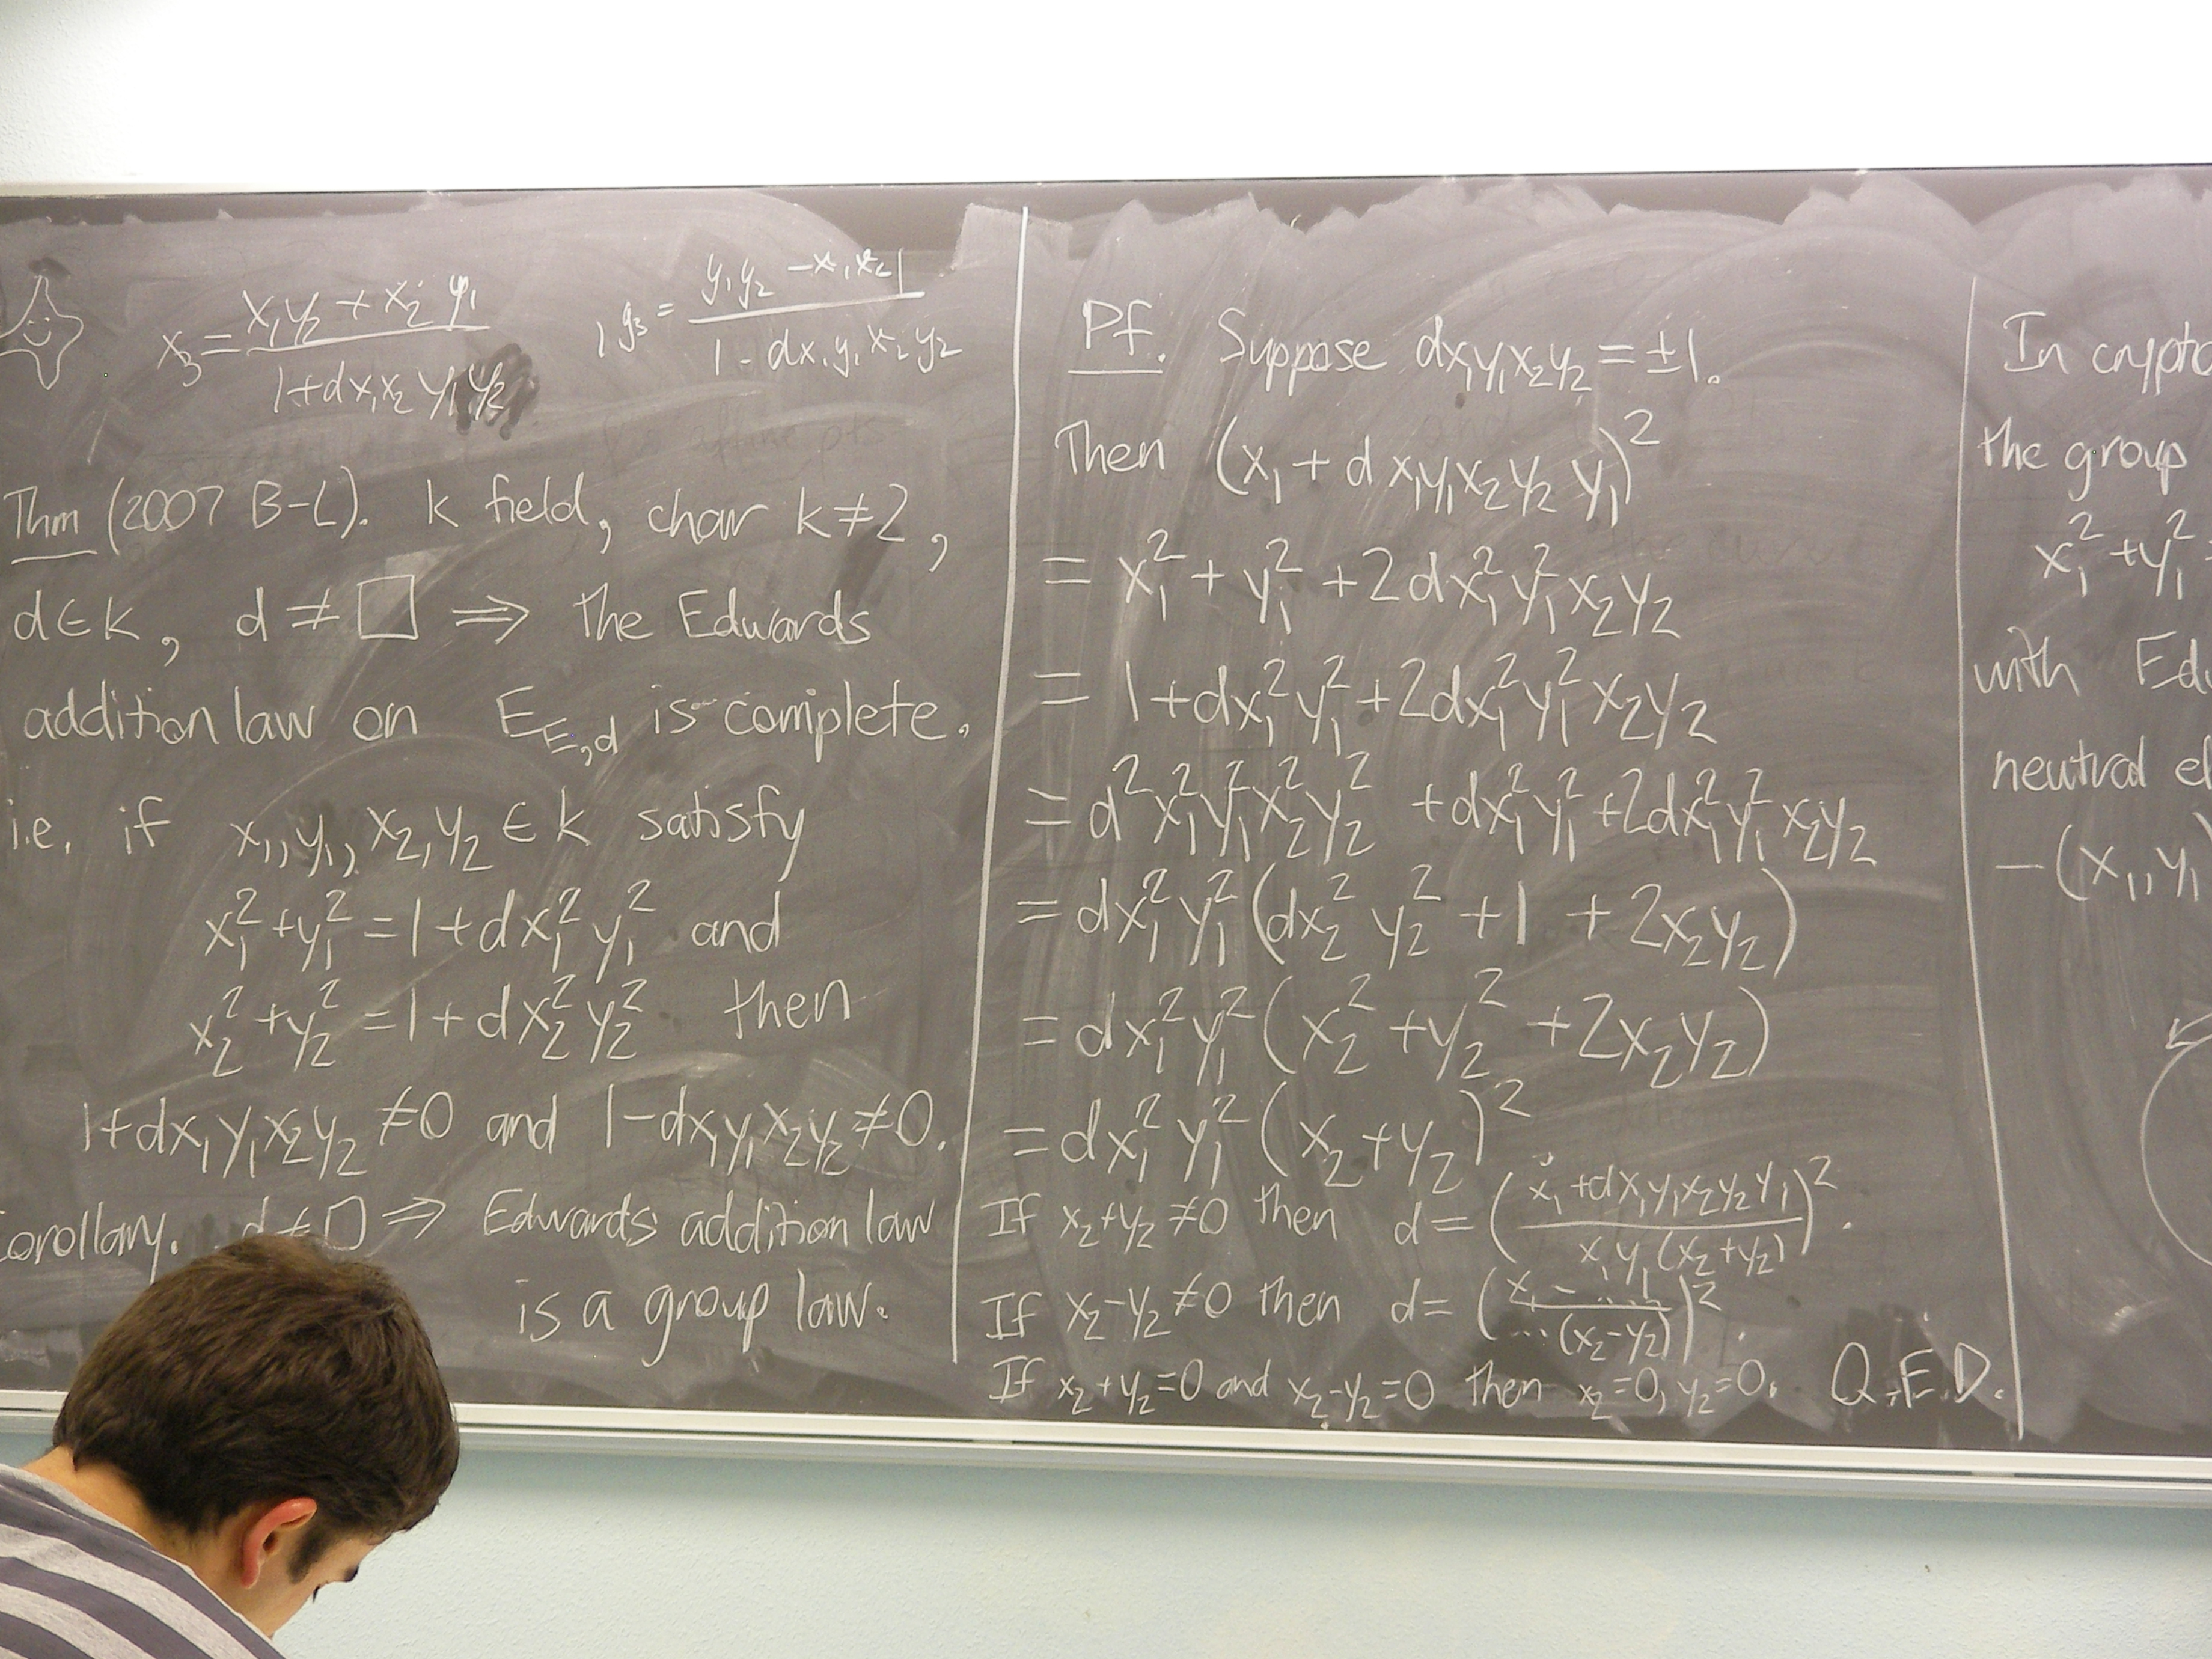 x₃ = (x₁y₂ + x₂y₁)/(1+dx₁x₂y₁y₂) , y₃ = (y₁y₂ − x₁x₂)/(1−dx₁y₁x₂y₂)
Thm (2007 B-L). k field, char k≠2,
d∈k, d≠□ ⇒ the Edwards
addition law on E_{E,d} is complete.
i.e. if x₁,y₁,x₂,y₂ ∈ k satisfy
x₁²+y₁²=1+dx₁²y₁² and
x₂²+y₂²=1+dx₂²y₂² then
1+dx₁y₁x₂y₂≠0 and 1−dx₁y₁x₂y₂≠0.
Corollary. d≠□ ⇒ Edwards addition law
is a group law.
Pf. Suppose dx₁y₁x₂y₂=±1.
Then (x₁+dx₁y₁x₂y₂y₁)²
= x₁²+y₁²+2dx₁²y₁²x₂y₂
= 1+dx₁²y₁²+2dx₁²y₁²x₂y₂
= d²x₁²y₁²x₂²y₂²+dx₁²y₁²+2dx₁²y₁²x₂y₂
= dx₁²y₁²(dx₂²y₂²+1+2x₂y₂)
= dx₁²y₁²(x₂²+y₂²+2x₂y₂)
= dx₁²y₁²(x₂+y₂)²
If x₂+y₂≠0 then d=((x₁+dx₁y₁x₂y₂y₁)/(x₁y₁(x₂+y₂)))².
If x₂−y₂≠0 then d=((x₁−...)/(...(x₂−y₂)))².
If x₂+y₂=0 and x₂−y₂=0 then x₂=0, y₂=0. Q.E.D.
In crypto
the group
x₁²+y₁²
with Ed
neutral el
−(x₁,y₁)